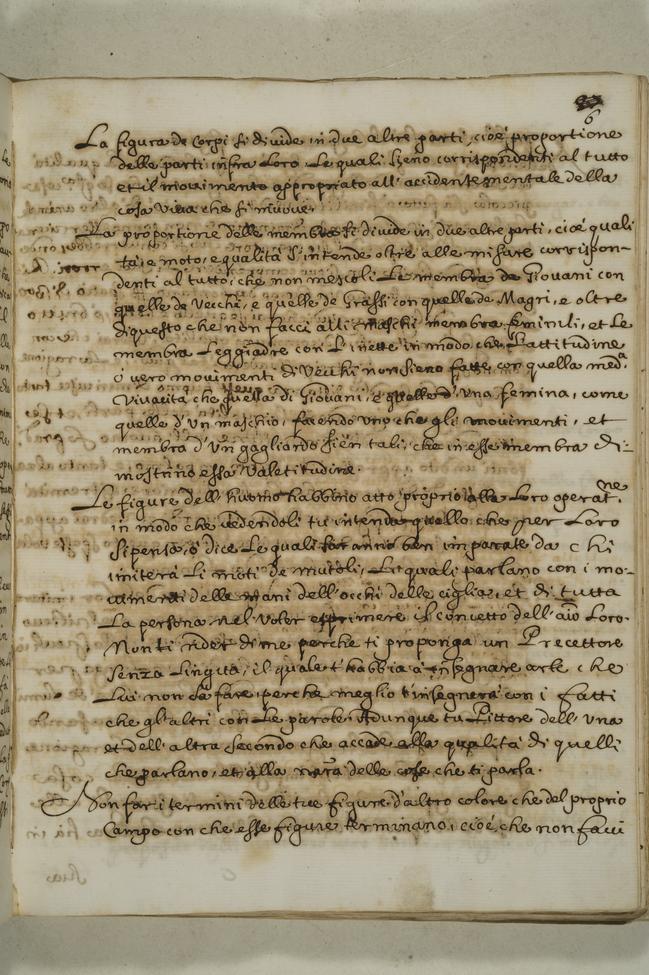 6
La figura de Corpi si divide in due altre parti, cioè proportione
delle parti infra Loro Le quali sieno corrispondenti al tutto
et il movimento appropriato all' accidente mentale della
cosa Viva che si muove.
La proportione delle membra si divide in due altre parti, cioè quali
tà, e moto, e qualità s'intende oltre alle misure corrispon-
denti al tutto, che non mescoli Le membra de Giovani con
quelle de Vecchi, e quelle de Grassi con quelle de Magri, e oltre
di questo che non facci alli Maschi membra feminili, et Le
membra Leggiadre con L'inette in modo che L'attitudine
ò vero movimenti di Vecchi non sieno fatte con quella med.a
Vivacità che quella di Giovani, e quelle d'una femina, come
quelle d'un maschio, facendo che gli movimenti, et
membra d'un gagliardo sien tali, che in esse membra di-
mostrino essa Valetitudine.
Le figure dell' huomo habbino atto proprio alla Loro operat.ne
in modo che vedendoli tu intenda quello che per Loro
si pensa, ò dice Le quali saranno ben imparate da chi
imiterà Li moti de mutoli, Li quali parlano con i mo-
vimenti delle mani dell' occhi delle ciglia, et di tutta
La persona nel voler esprimere il concetto dell' aio Loro.
Non ti rider di me perche ti proponga un Precettore
senza Lingua, il quale t'habbia à insegnare arte che
Lui non sà fare perche meglio t'insegnerà con i fatti
che gl'altri con Le parole, Adunque tu Pittore dell' una
et dell' altra secondo che accade alla qualità di quelli
che parlano, et alla nara delle cose che ti parla.
Non far i termini delle tue figure d'altro colore che del proprio
Campo con che esse figure terminano, cioè, che non facci